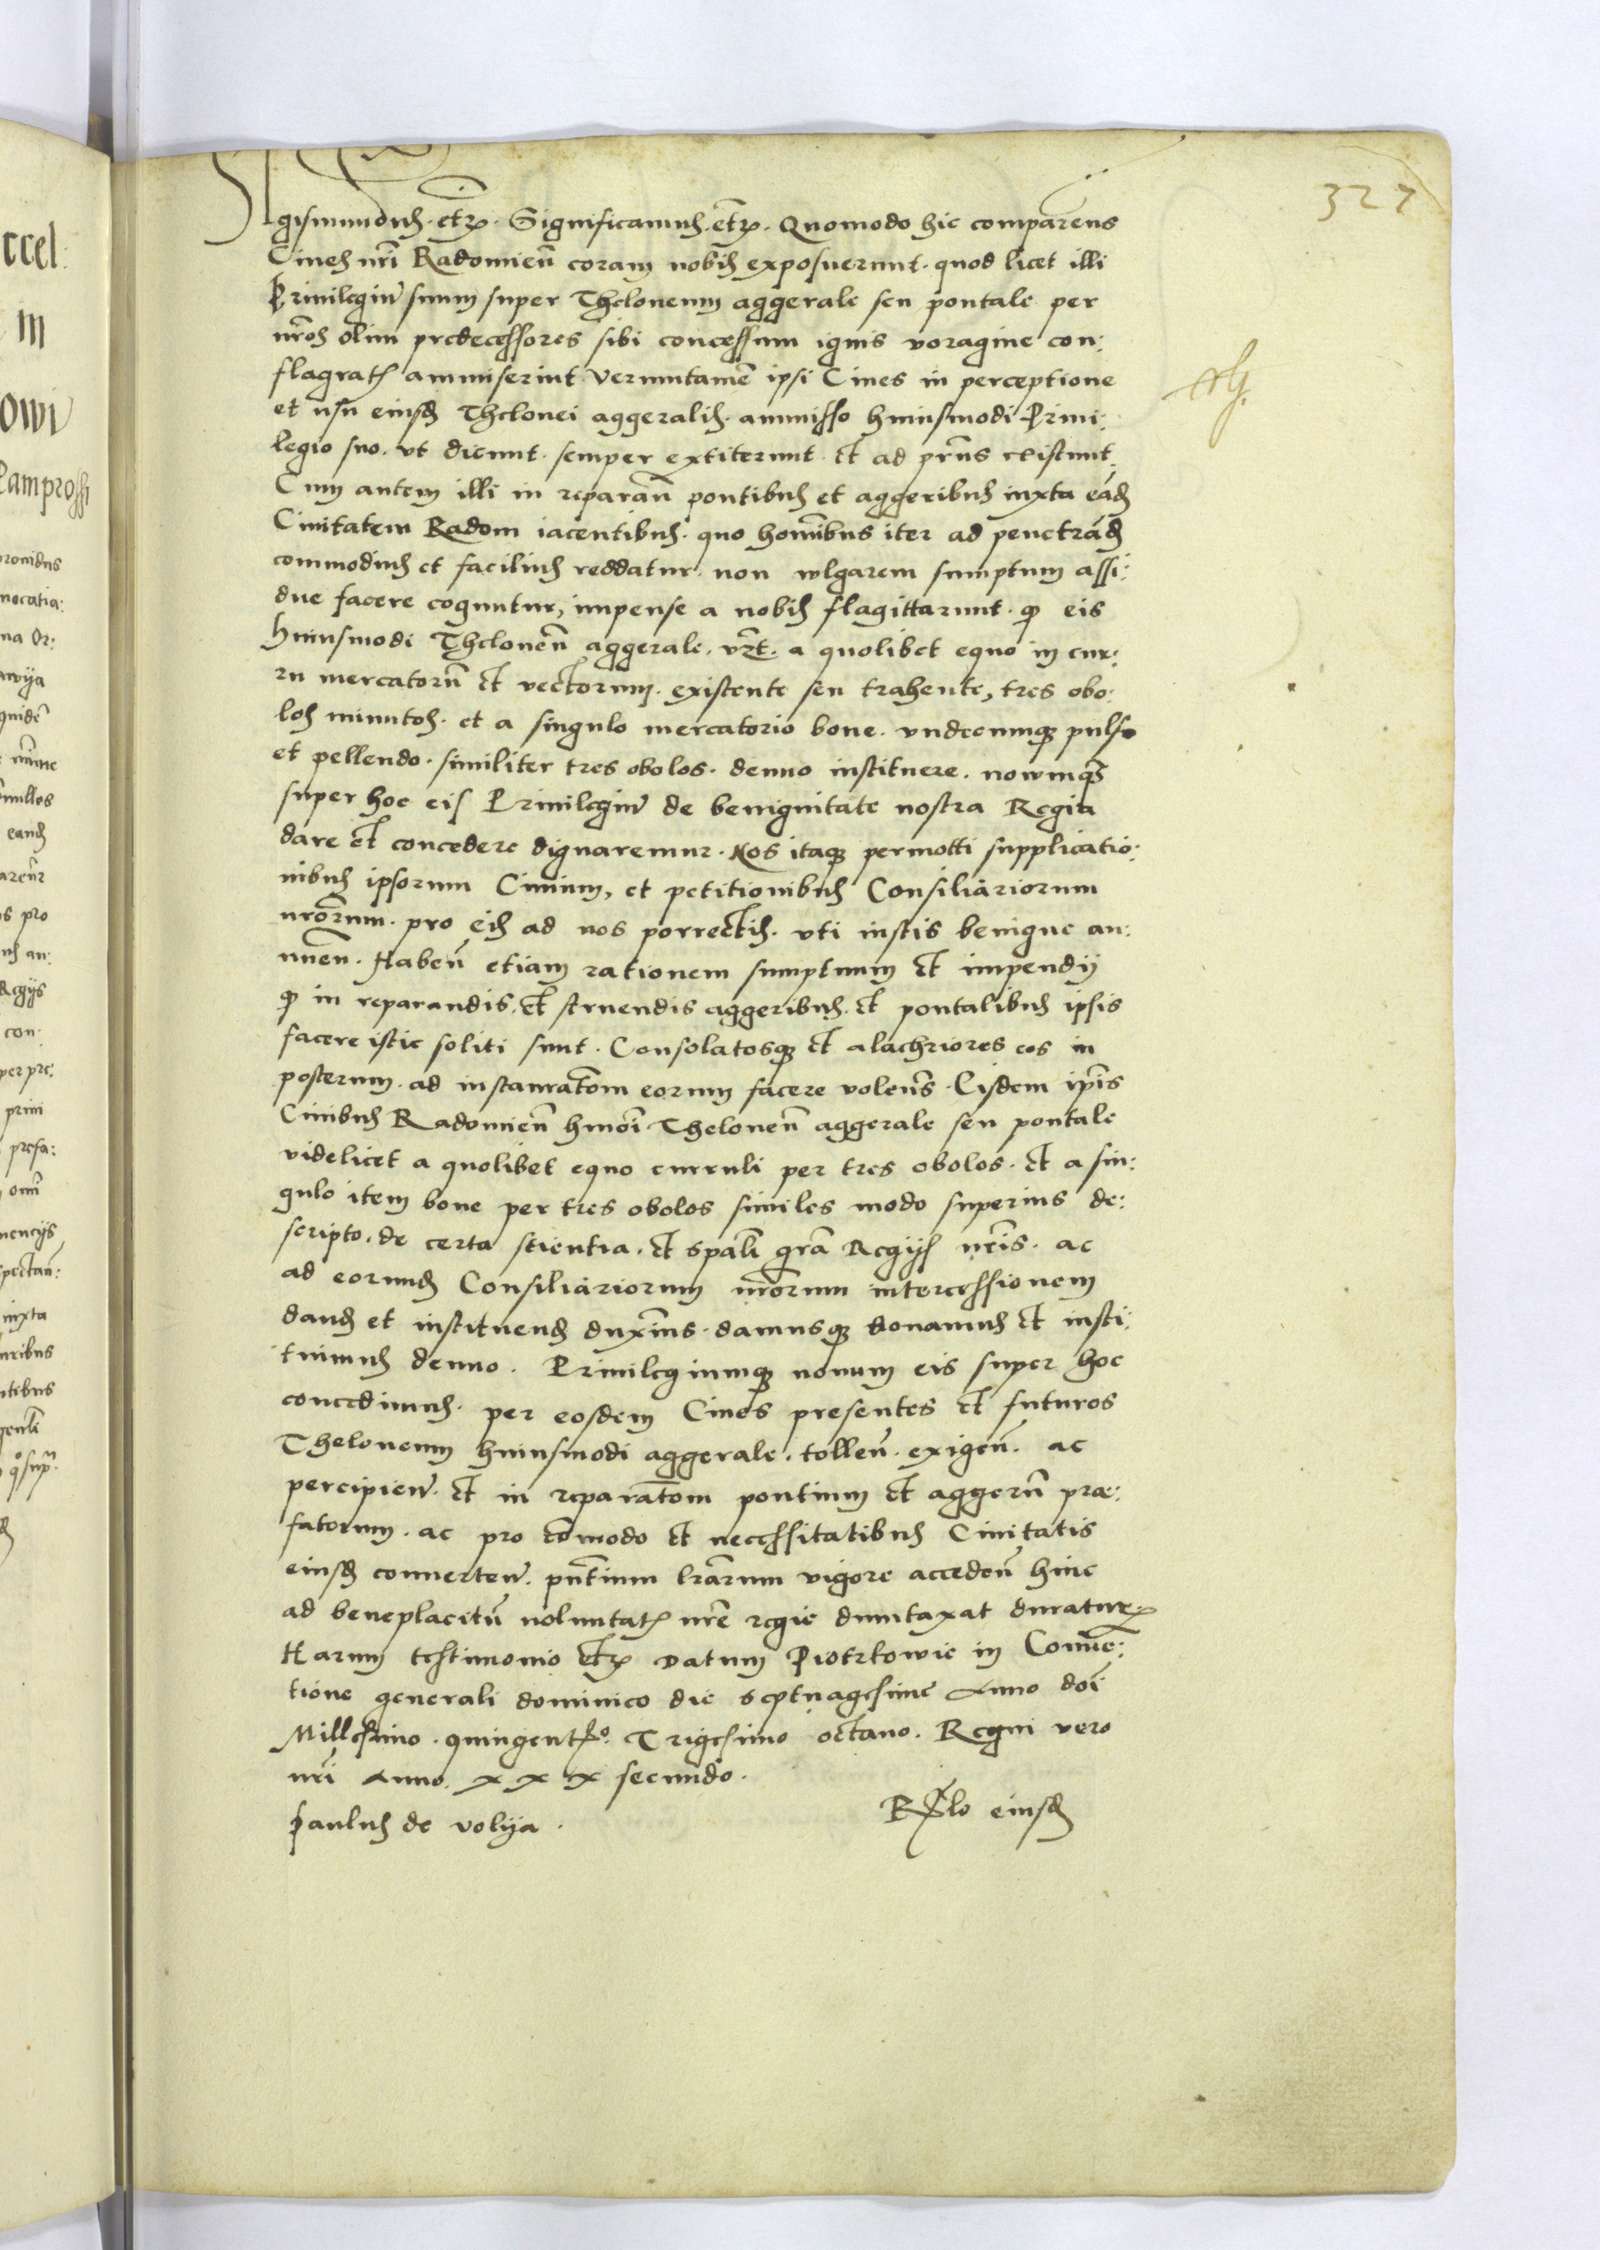 327
Sigismundus. etc. Significamus. etc. Quomodo hic comparens
Cives nri Radomien coram nobis exposuerunt. quod licet illi
Privilegiu suum super Theloneum aggerale seu pontale per
nros olim predecessores sibi concessum ignis voragine con:
flagrat ammiserint. Verumtame ipsi Cives in perceptione
et usu eiusd Thelonei aggeralis. ammisso huiusmodi Privi:
legio suo. ut dicunt. semper extiterunt. et ad prns existunt.
Cum autem illi in reparan pontibus et aggeribus iuxta eand
Civitatem Radom iacentibus. quo hominibus iter ad penetrand
commodius et facilius reddatur. non vulgarem sumptum assi:
due facere coguntur, impense a nobis flagittarunt. q eis
huiusmodi Theloneu aggerale. vzt. a quolibet equo in cur:
ru mercatoru et vectorum. existente seu trahente, tres obo:
los minutos. et a singulo mercatorio bove. undecumq pulso
et pellendo. similiter tres obolos. denuo instituere. novumq
super hoc eis Privilegiu de benignitate nostra Regia
dare et concedere dignaremur. Nos itaq permotti supplicatio:
nibus ipsorum Civium, et petitionibus Consiliariorum
nrorum. pro eis ad nos porrectis. uti iustis benigne an:
nuen. Haben etiam rationem sumptuum et impendij
q in reparandis. et struendis aggeribus. et pontalibus ipsis
facere istic soliti sunt. Consolatosq et alachriores eos in
posterum. ad instauratom eorum facere volens. Eisdem ipis
Civibus Radomien hmoi Theloneu aggerale seu pontale
videlicet a quolibet equo curruli per tres obolos. et a sin:
gulo item bove per tres obolos similes modo superius de:
scripto. de certa scientia. et spali gra Regijs nris. ac
ad eorund Consiliariorum nrorum intercessionem
dand et instituend duximus. damusq donamus et insti:
tuimus denuo. Privilegiumq novum eis super hoc
concedimus. per eosdem Cives presentes et futuros
Theloneum huiusmodi aggerale. tollen. exigen. ac
percipien. et in reparatom pontium et aggeru prae:
fatorum. ac pro comodo et necessitatibus Civitatis
eiusd converten. pntium lrarum vigore acceden huic
ad beneplacitu voluntat nre regie dumtaxat duratur
Harum testimonio etc Datum Piotrkowie in Conve:
tione generali dominico die septuagesime Anno doi
Millesimo. quingentmo. Trigesimo octavo. Regni vero
nri Anno. xxx secundo.
Paulus de volija. Rlo eiusd